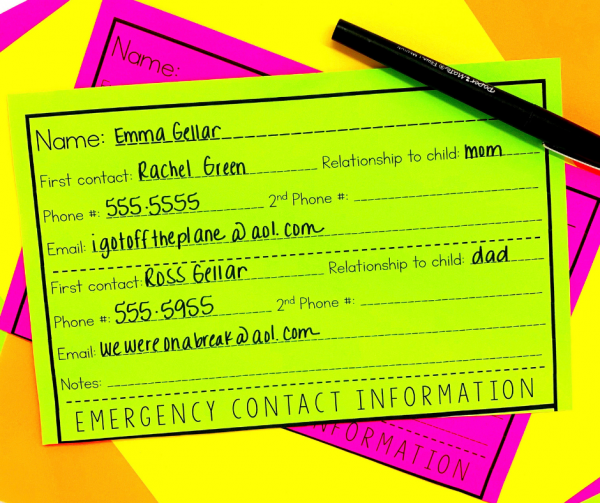 Name:
Paper Mate
Name: Emma Gellar
First contact: Rachel Green Relationship to child: mom
Phone #: 555-5555 2nd Phone #:
Email: igotofftheplane@aol.com
First contact: Ross Gellar Relationship to child: dad
Phone #: 555-5955 2nd Phone #:
Email: wewereonabreak@aol.com
Notes:
EMERGENCY CONTACT INFORMATION
INFORMATION